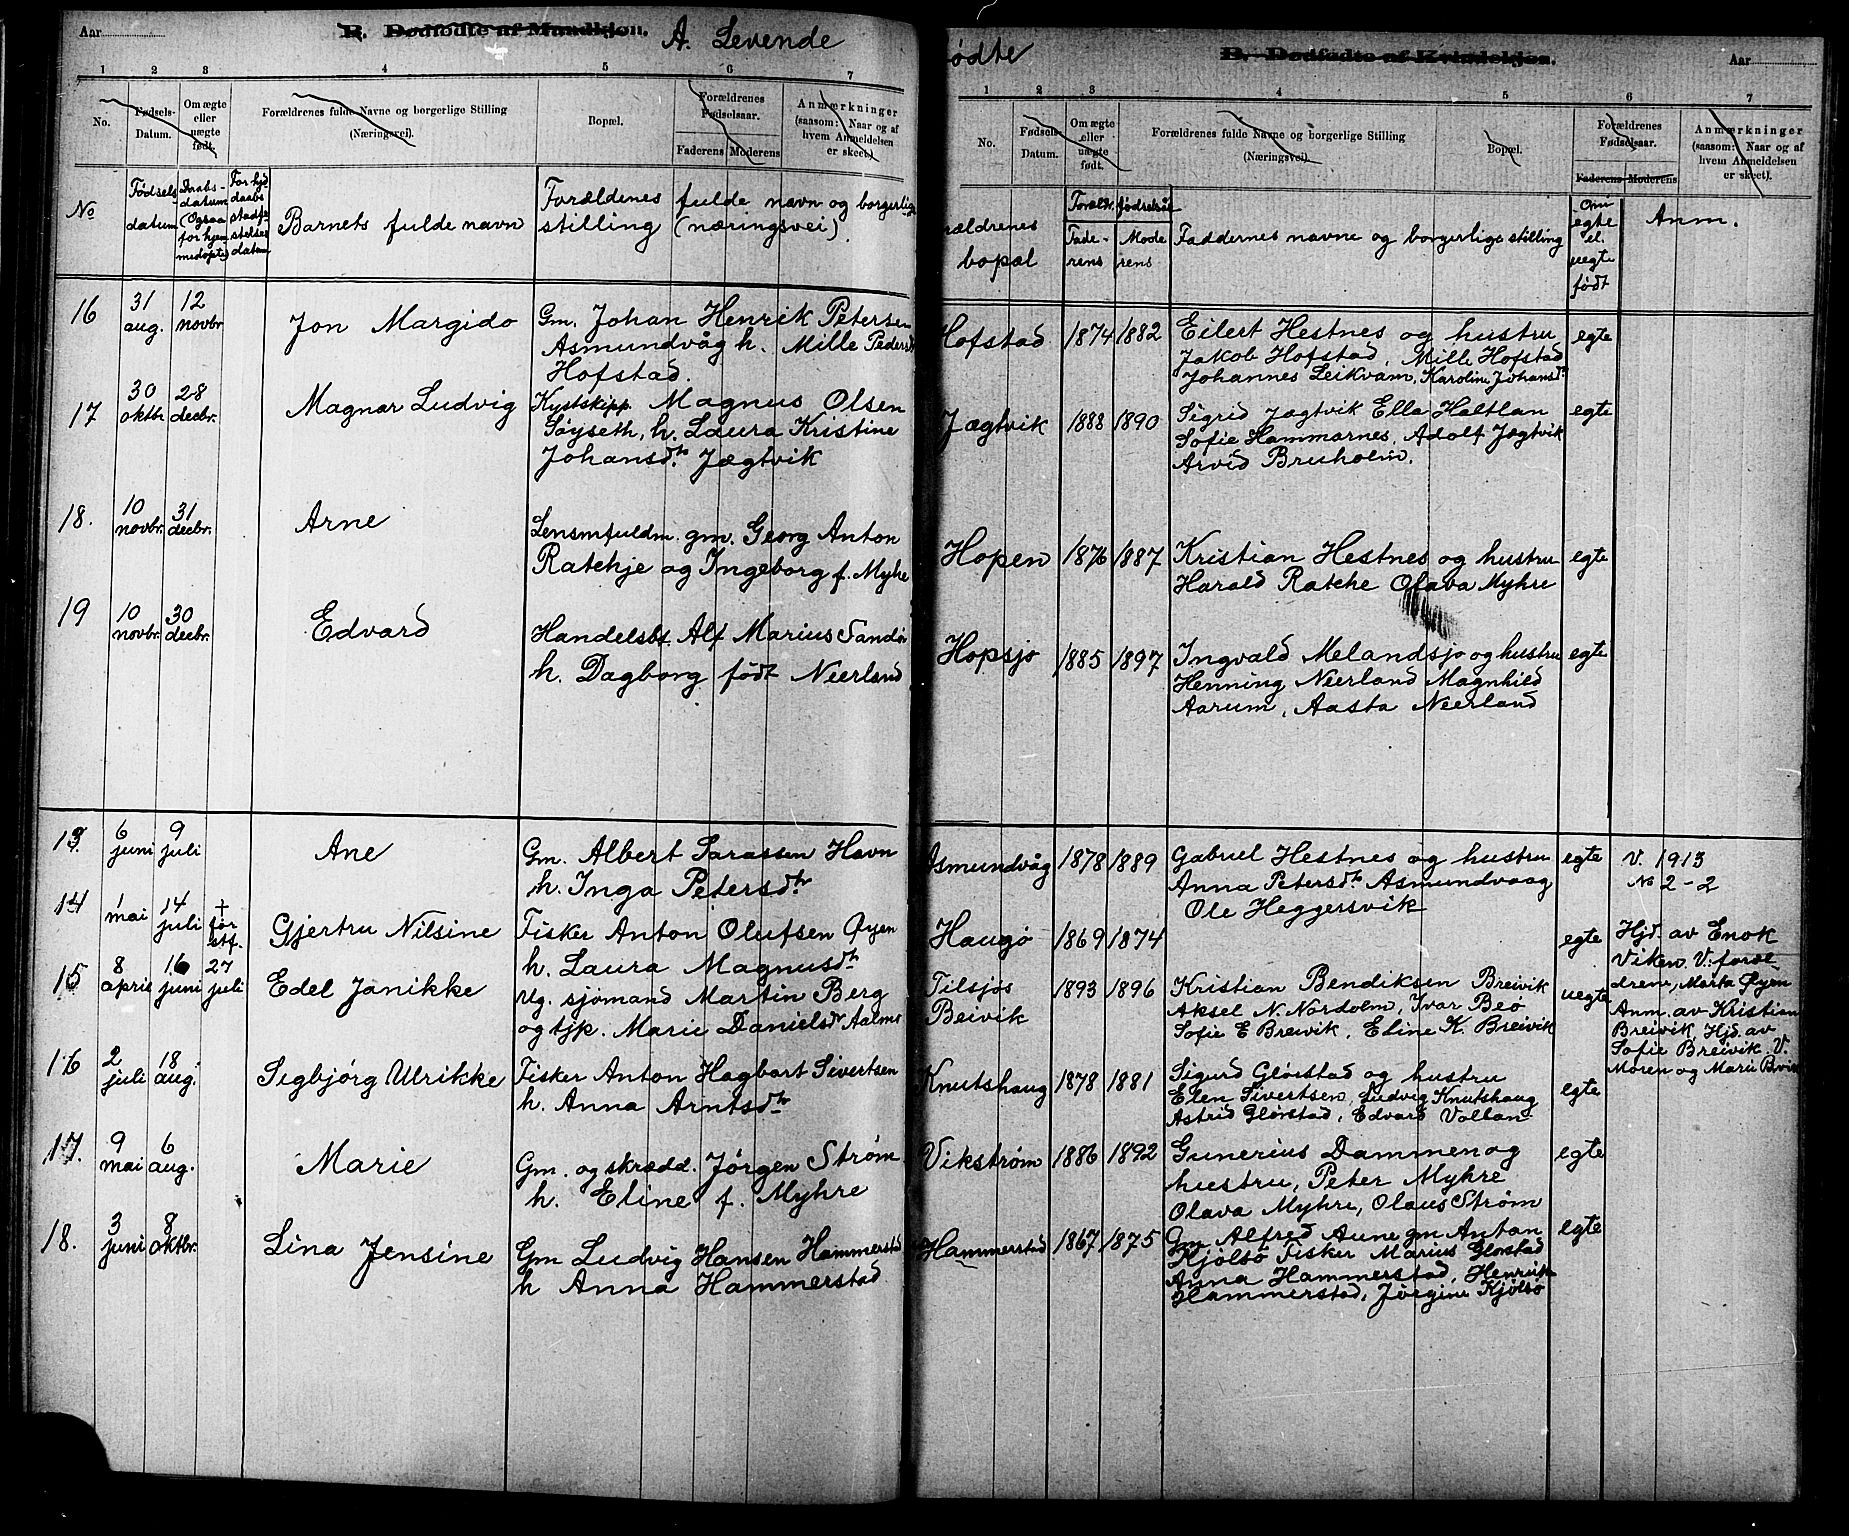 Aar
B. Dødfødte af Mandkjøn. A. Levende
1 2 3 4 5 6 7
No. Fødsels-Datum. Om ægte eller uægte født. Forældrenes fulde Navne og borgerlige Stilling (Næringsvei). Bopæl. Forældrenes Fødselsaar. Faderens Moderens Anmærkninger (saasom: Naar og af hvem Anmeldelsen er skeet).
No Fødsels datum Daabs-datum (Ogsaa for hjem medøpte) For hjd. daabs stadfæstelses datum Barnets fulde navn Forældenes fulde navn og borgerlige stilling (næringsvei).
16 31 aug. 12 novbr. Jon Margido Gm. Johan Henrik Petersen
Asmundvåg h. Mille Pedersd
Hofstad.
17 30 oktb 28 decbr. Magnar Ludvig Kystskipp. Magnus Olsen
Søyseth, h. Laura Kristine
Johansdtr Jægtvik
18. 10 novbr. 31 decbr. Arne Lensmfuldm. gm. Georg Anton
Ratchje og Ingeborg f. Myhre
19 10 novbr. 30 decbr. Edvard Handelsbt. Alf Marius Sandø
h. Dagborg født Neerland
13. 6 juni 9 juli Ane Gm. Albert Sarassen Havn
h. Inga Petersdtr
14 1 mai 14 juli † før stf. Gjertru Nilsine Fisker Anton Olufsen Øyen
h. Laura Magnusdtr
15 8 april 16 juni 27 juli Edel Janikke Ug. sjømand Martin Berg
og tjp. Marie Danielsdtr Aalmo
16 2 juli 18 aug. Sigbjørg Ulrikke Fisker Anton Hagbart Sivertsen
h. Anna Arntsdtr
17. 9 mai 6 aug. Marie Gm. og skrædd. Jørgen Strøm
h. Eline f. Myhre
18. 3 juni 8 oktbr. Lina Jensine Gm Ludvig Hansen Hammerstad
h Anna Hammerstad
ødte B. Dødfødte af Kvindekjøn. Aar
1 2 3 4 5 6 7
No. Fødsels-Datum. Om ægte eller uægte født. Forældrenes fulde Navne og borgerlige Stilling (Næringsvei). Bopæl. Forældrenes Fødselsaar. Faderens Moderens Anmærkninger (saasom: Naar og af hvem Anmeldelsen er skeet).
rældrenes bopæl Forældr. fødselsår Fade-rens Mode rens Faddernes navne og borgerlige stilling Om egte el. uegte født Anm.
Hofstad 1874 1882 Eilert Hestnes og hustru egte
Jakob Hofstad, Mille Hofstad
Johannes Leikvam, Karoline Johansd
Jægtvik 1888 1890 Sigrid Jægtvik Ella Haltlan egte
Sofie Hammarnes, Adolf Jægtvik
Arvid Brusholm.
Hopen 1876 1887 Kristian Hestnes og hustru egte
Harald Ratche Olava Myhre
Hopsjø 1885 1897 Ingvald Melandsjø og hustru egte
Henning Neerland Magnhild
Aarum, Aasta Neerland
Asmundvåg 1878 1889 Gabriel Hestnes og hustru egte V. 1913
Anna Petersdtr Asmundvaag No 2-2
Ole Heggersvik
Haugø 1869 1874 egte Hjd. av Enok
Viken. V: foræl-
drene, Marta Øyen
Tilsjøs Beivik 1893 1896 Kristian Bendiksen Breivik uegte Anm. av Kristian
Aksel N. Nordolm, Ivar Beø Breivik, Hjd. av
Sofie E Breivik, Eline K. Breivik Sofie Breivik. V.
Moren og Marie Bvik
Knutshaug 1878 1881 Sigurd Glørstad og hustru egte
Elen Sivertsen, Ludvig Knutshaug
Astrid Glørstad, Edvard Vollan
Vikstrøm 1886 1892 Gunerius Dammen og egte
hustru, Peter Myhre
Olava Myhre, Olaus Strøm
Hammerstad 1867 1875 Gm Alfred Aune gm Anton egte
Kjølsø Fisker Marius Glørstad
Anna Hammerstad, Henrik
Hammerstad, Jørgine Kjølsø